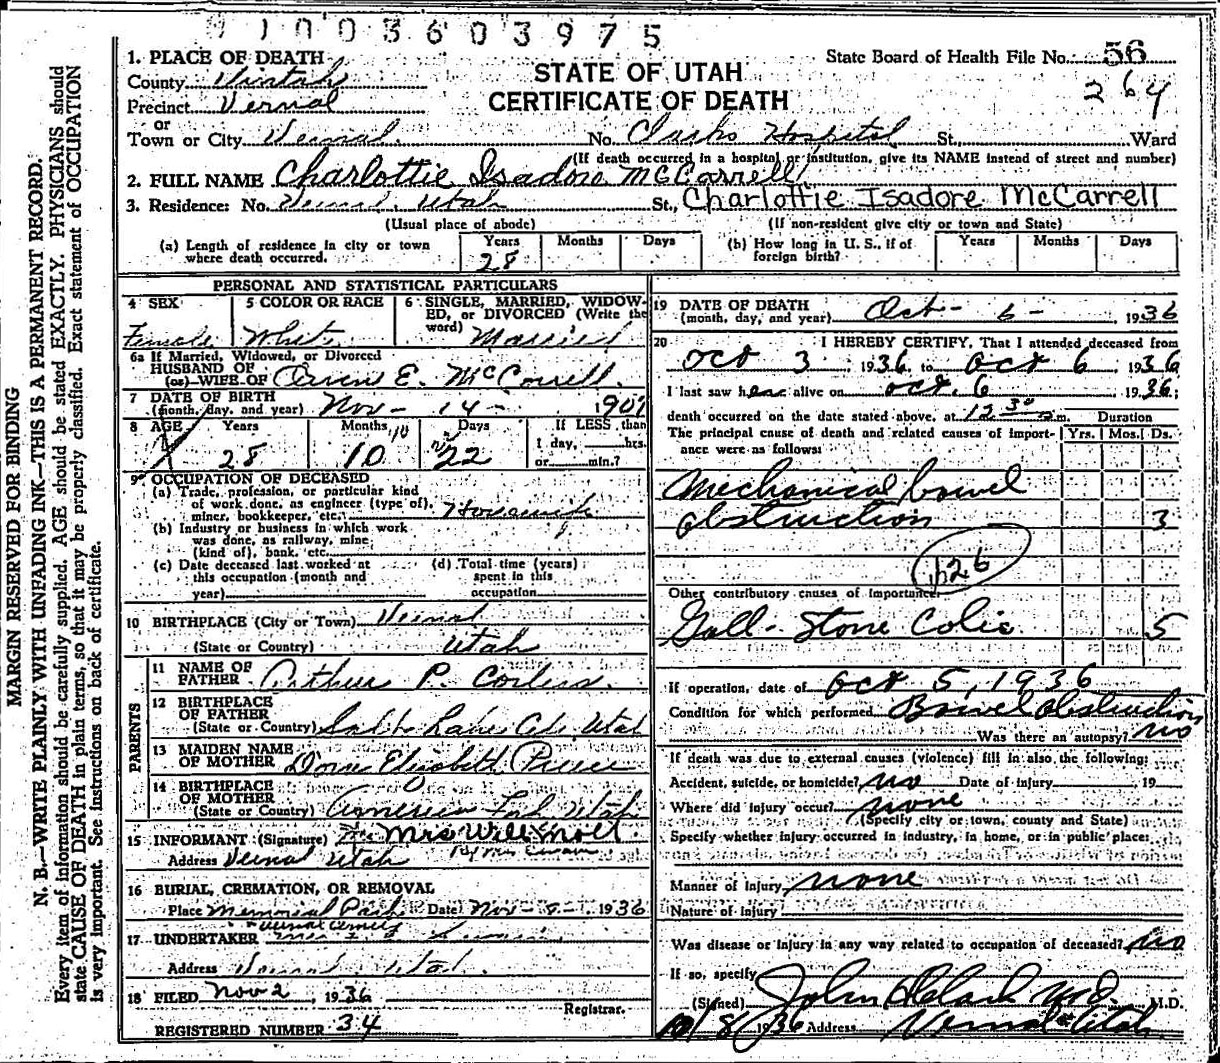 91003603975
1. PLACE OF DEATH
State Board of Health File No. 56
County Uintah
STATE OF UTAH
264
Precinct Vernal
CERTIFICATE OF DEATH
or
Town or City Vernal. No. Clarks Hospital St., Ward
(If death occurred in a hospital or institution, give its NAME instead of street and number)
2. FULL NAME Charlottie Isadore McCarrell
3. Residence: No. Vernal, Utah St., Charlottie Isadore McCarrell
(Usual place of abode) (If non-resident give city or town and State)
(a) Length of residence in city or town where death occurred. Years 28 Months Days
(b) How long in U. S., if of foreign birth? Years Months Days
MARGIN RESERVED FOR BINDING
N. B.—WRITE PLAINLY WITH UNFADING INK—THIS IS A PERMANENT RECORD.
Every item of information should be carefully supplied. AGE should be stated EXACTLY. PHYSICIANS should
state CAUSE OF DEATH in plain terms, so that it may be properly classified. Exact statement of OCCUPATION
is very important. See instructions on back of certificate.
PERSONAL AND STATISTICAL PARTICULARS
4 SEX Female
5 COLOR OR RACE White
6 SINGLE, MARRIED, WIDOWED, or DIVORCED (Write the word) Married
6a If Married, Widowed, or Divorced
HUSBAND OF
(or) WIFE OF E. McCarrell.
7 DATE OF BIRTH
(month, day, and year) Nov- 14- 1907
8 AGE Years 28 Months 10 Days 22 If LESS than
1 day, hrs.
or min.?
9 OCCUPATION OF DECEASED
(a) Trade, profession, or particular kind
of work done, as engineer (type of),
miner, bookkeeper, etc. Housewife
(b) Industry or business in which work
was done, as railway, mine
(kind of), bank, etc.
(c) Date deceased last worked at
this occupation (month and
year)
(d) Total time (years)
spent in this
occupation
10 BIRTHPLACE (City or Town) Vernal
(State or Country) Utah
PARENTS
11 NAME OF
FATHER Arthur P. Corless.
12 BIRTHPLACE
OF FATHER
(State or Country) Salt Lake Co. Utah
13 MAIDEN NAME
OF MOTHER Dora Elisabeth Pierce
14 BIRTHPLACE
OF MOTHER
(State or Country) American Fork Utah
15 INFORMANT (Signature) Mrs Will
Address Vernal Utah
16 BURIAL, CREMATION, OR REMOVAL
Place Memorial Park Date Nov- 8- 1936
17 UNDERTAKER
Address Vernal Utah.
18 FILED Nov 2, 1936
Registrar.
REGISTERED NUMBER 34
19 DATE OF DEATH
(month, day, and year) Oct- 6-, 1936
20 I HEREBY CERTIFY, That I attended deceased from
Oct 3, 1936 to Oct 6, 1936
I last saw her alive on Oct. 6 1936;
death occurred on the date stated above, at 12 30 m. Duration
The principal cause of death and related causes of importance were as follows: Yrs. Mos. Ds.
Mechanical bowel
obstruction 3
Other contributory causes of importance:
Gall-Stone Colic 5
If operation, date of Oct 5, 1936
Condition for which performed Bowel obstruction
Was there an autopsy? no
If death was due to external causes (violence) fill in also the following:
Accident, suicide, or homicide? no Date of injury 19
Where did injury occur? none
(Specify city or town, county and State)
Specify whether injury occurred in industry, in home, or in public place:
Manner of injury none
Nature of injury
Was disease or injury in any way related to occupation of deceased? no
If so, specify
(Signed) John Clark M.D. M.D.
10/8/1936 Address Vernal Utah